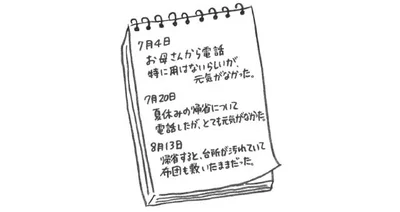 7月4日
お母さんから電話
特に用はないらしいが、
元気がなかった。
7月20日
夏休みの帰省について
電話したが、とても元気がなかった。
8月13日
帰省すると、台所が汚れていて
布団も敷いたままだった。